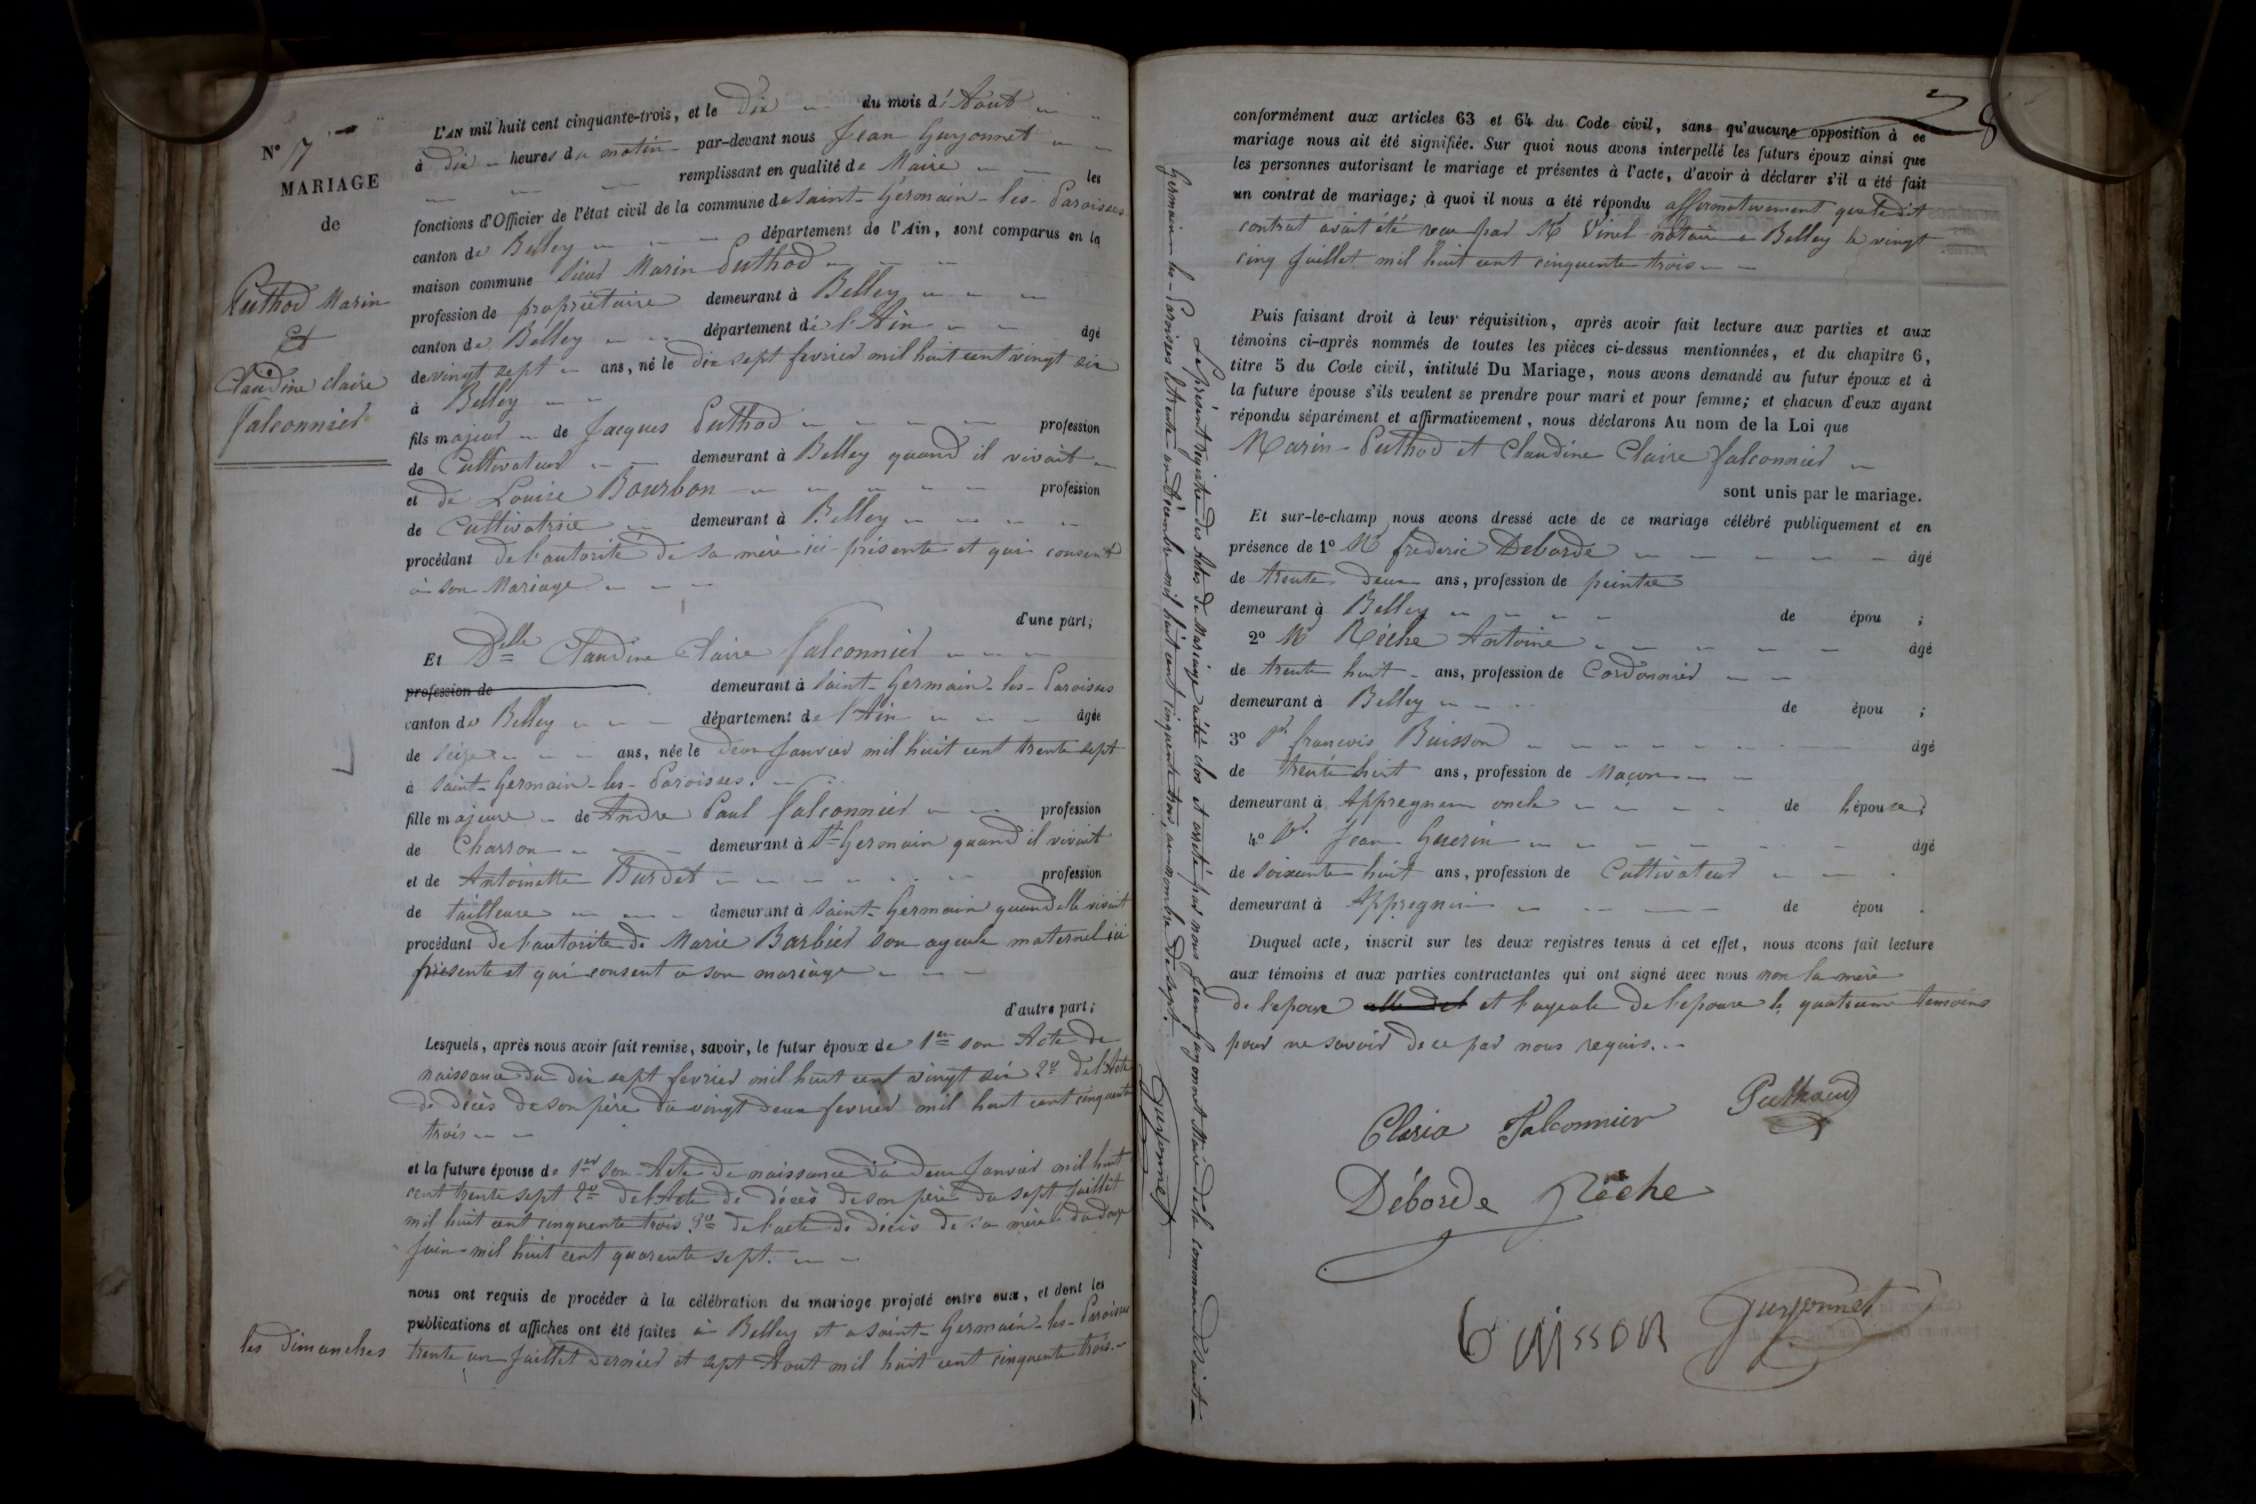 N° 17
MARIAGE
de
Puthod Marin
Et
Claudine Claire
falconnier
L'AN mil huit cent cinquante-trois, et le Dix du mois d'Aout
à dix heures du matin par-devant nous Jean Guyonnet
remplissant en qualité de Maire les
fonctions d'Officier de l'état civil de la commune de Saint-Germain-les-Paroisses
canton de Belley département de l'Ain, sont comparus en la
maison commune Sieur Marin Puthod
profession de propriétaire demeurant à Belley
canton de Belley département de l'Ain âgé
de vingt sept ans, né le dix sept fevrier mil huit cent vingt six
à Belley
fils majeur de Jacques Puthod profession
de Cultivateur demeurant à Belley quand il vivait
et de Louise Bourbon profession
de Cultivatrice demeurant à Belley
procédant de l'autorité de sa mère ici présente et qui consent
à son Mariage
d'une part;
Et Delle Claudine Claire falconnier
profession de demeurant à Saint-Germain-les-Paroisses
canton de Belley département de l'Ain âgée
de seize ans, née le deux Janvier mil huit cent trente sept
à Saint-Germain-les-Paroisses.
fille majeure de Andre Paul falconnier profession
de Charron demeurant à St Germain quand il vivait
et de Antoinette Burdet profession
de tailleuse demeurant à Saint-Germain quand elle vivait
procédant de l'autorite de Marie Barbier son ayeule maternel ici
présente et qui consent a son mariage
d'autre part;
Lesquels, après nous avoir fait remise, savoir, le futur époux de 1er son Acte de
naissance du dix sept fevrier mil huit cent vingt six 2° de l'Acte
de décès de son père du vingt deux fevrier mil huit cent cinquante
trois
et la future épouse de 1er Son Acte de naissance du deux Janvier mil huit
cent trente sept 2° de l'Acte de décès de son père du sept Juillet
mil huit cent cinquente trois 3° de l'acte de décès de sa mère du douze
Juin mil huit cent quarente sept.
nous ont requis de procéder à la célébration du mariage projeté entre eux, et dont les
publications et affiches ont été faites à Belley et a Saint-Germain-les-Paroisses
les dimanches trente un Juillet dernier et sept Aout mil huit cent cinquente trois.
28
conformément aux articles 63 et 64 du Code civil, sans qu'aucune opposition à ce
mariage nous ait été signifiée. Sur quoi nous avons interpellé les futurs époux ainsi que
les personnes autorisant le mariage et présentes à l'acte, d'avoir à déclarer s'il a été fait
un contrat de mariage; à quoi il nous a été répondu affirmativement que ledit
contrat avait été recu par Me Vinel notaire a Belley le vingt
cinq Juillet mil huit cent cinquente trois
Puis faisant droit à leur réquisition, après avoir fait lecture aux parties et aux
témoins ci-après nommés de toutes les pièces ci-dessus mentionnées, et du chapitre 6,
titre 5 du Code civil, intitulé Du Mariage, nous avons demandé au futur époux et à
la future épouse s'ils veulent se prendre pour mari et pour femme; et chacun d'eux ayant
répondu séparément et affirmativement, nous déclarons Au nom de la Loi que
Marin Puthod et Claudine Claire falconnier
sont unis par le mariage.
Et sur-le-champ nous avons dressé acte de ce mariage célébré publiquement et en
présence de 1° Mr frederic Deborde âgé
de trente deux ans, profession de peintre
demeurant à Belley de épou ;
2° Mr Réche Antoine âgé
de trente huit ans, profession de Cordonnier
demeurant à Belley de épou ;
3° Sr francois Buisson âgé
de trente huit ans, profession de Maçon
demeurant à Appregnin oncle de l'épouse;
4° Sr Jean Guerin âgé
de soixante huit ans, profession de Cultivateur
demeurant à Appregnin de épou .
Duquel acte, inscrit sur les deux registres tenus à cet effet, nous avons fait lecture
aux témoins et aux parties contractantes qui ont signé avec nous non la mère
de l'epoux et l'ayeule de l'epouse le quatrieme temoins
pour ne savoir de ce par nous requis.
Claria Falconnier Puthaud
Déborde Réche
buisson Guyonnet
Le présent registre des Actes de Mariage a été clos et arrêté par nous Jean Guyonnet Maire de la commune de Saint-
Germain-les-Paroisses le trente un Décembre mil huit cent cinquente trois, au nombre de sept.
Guyonnet